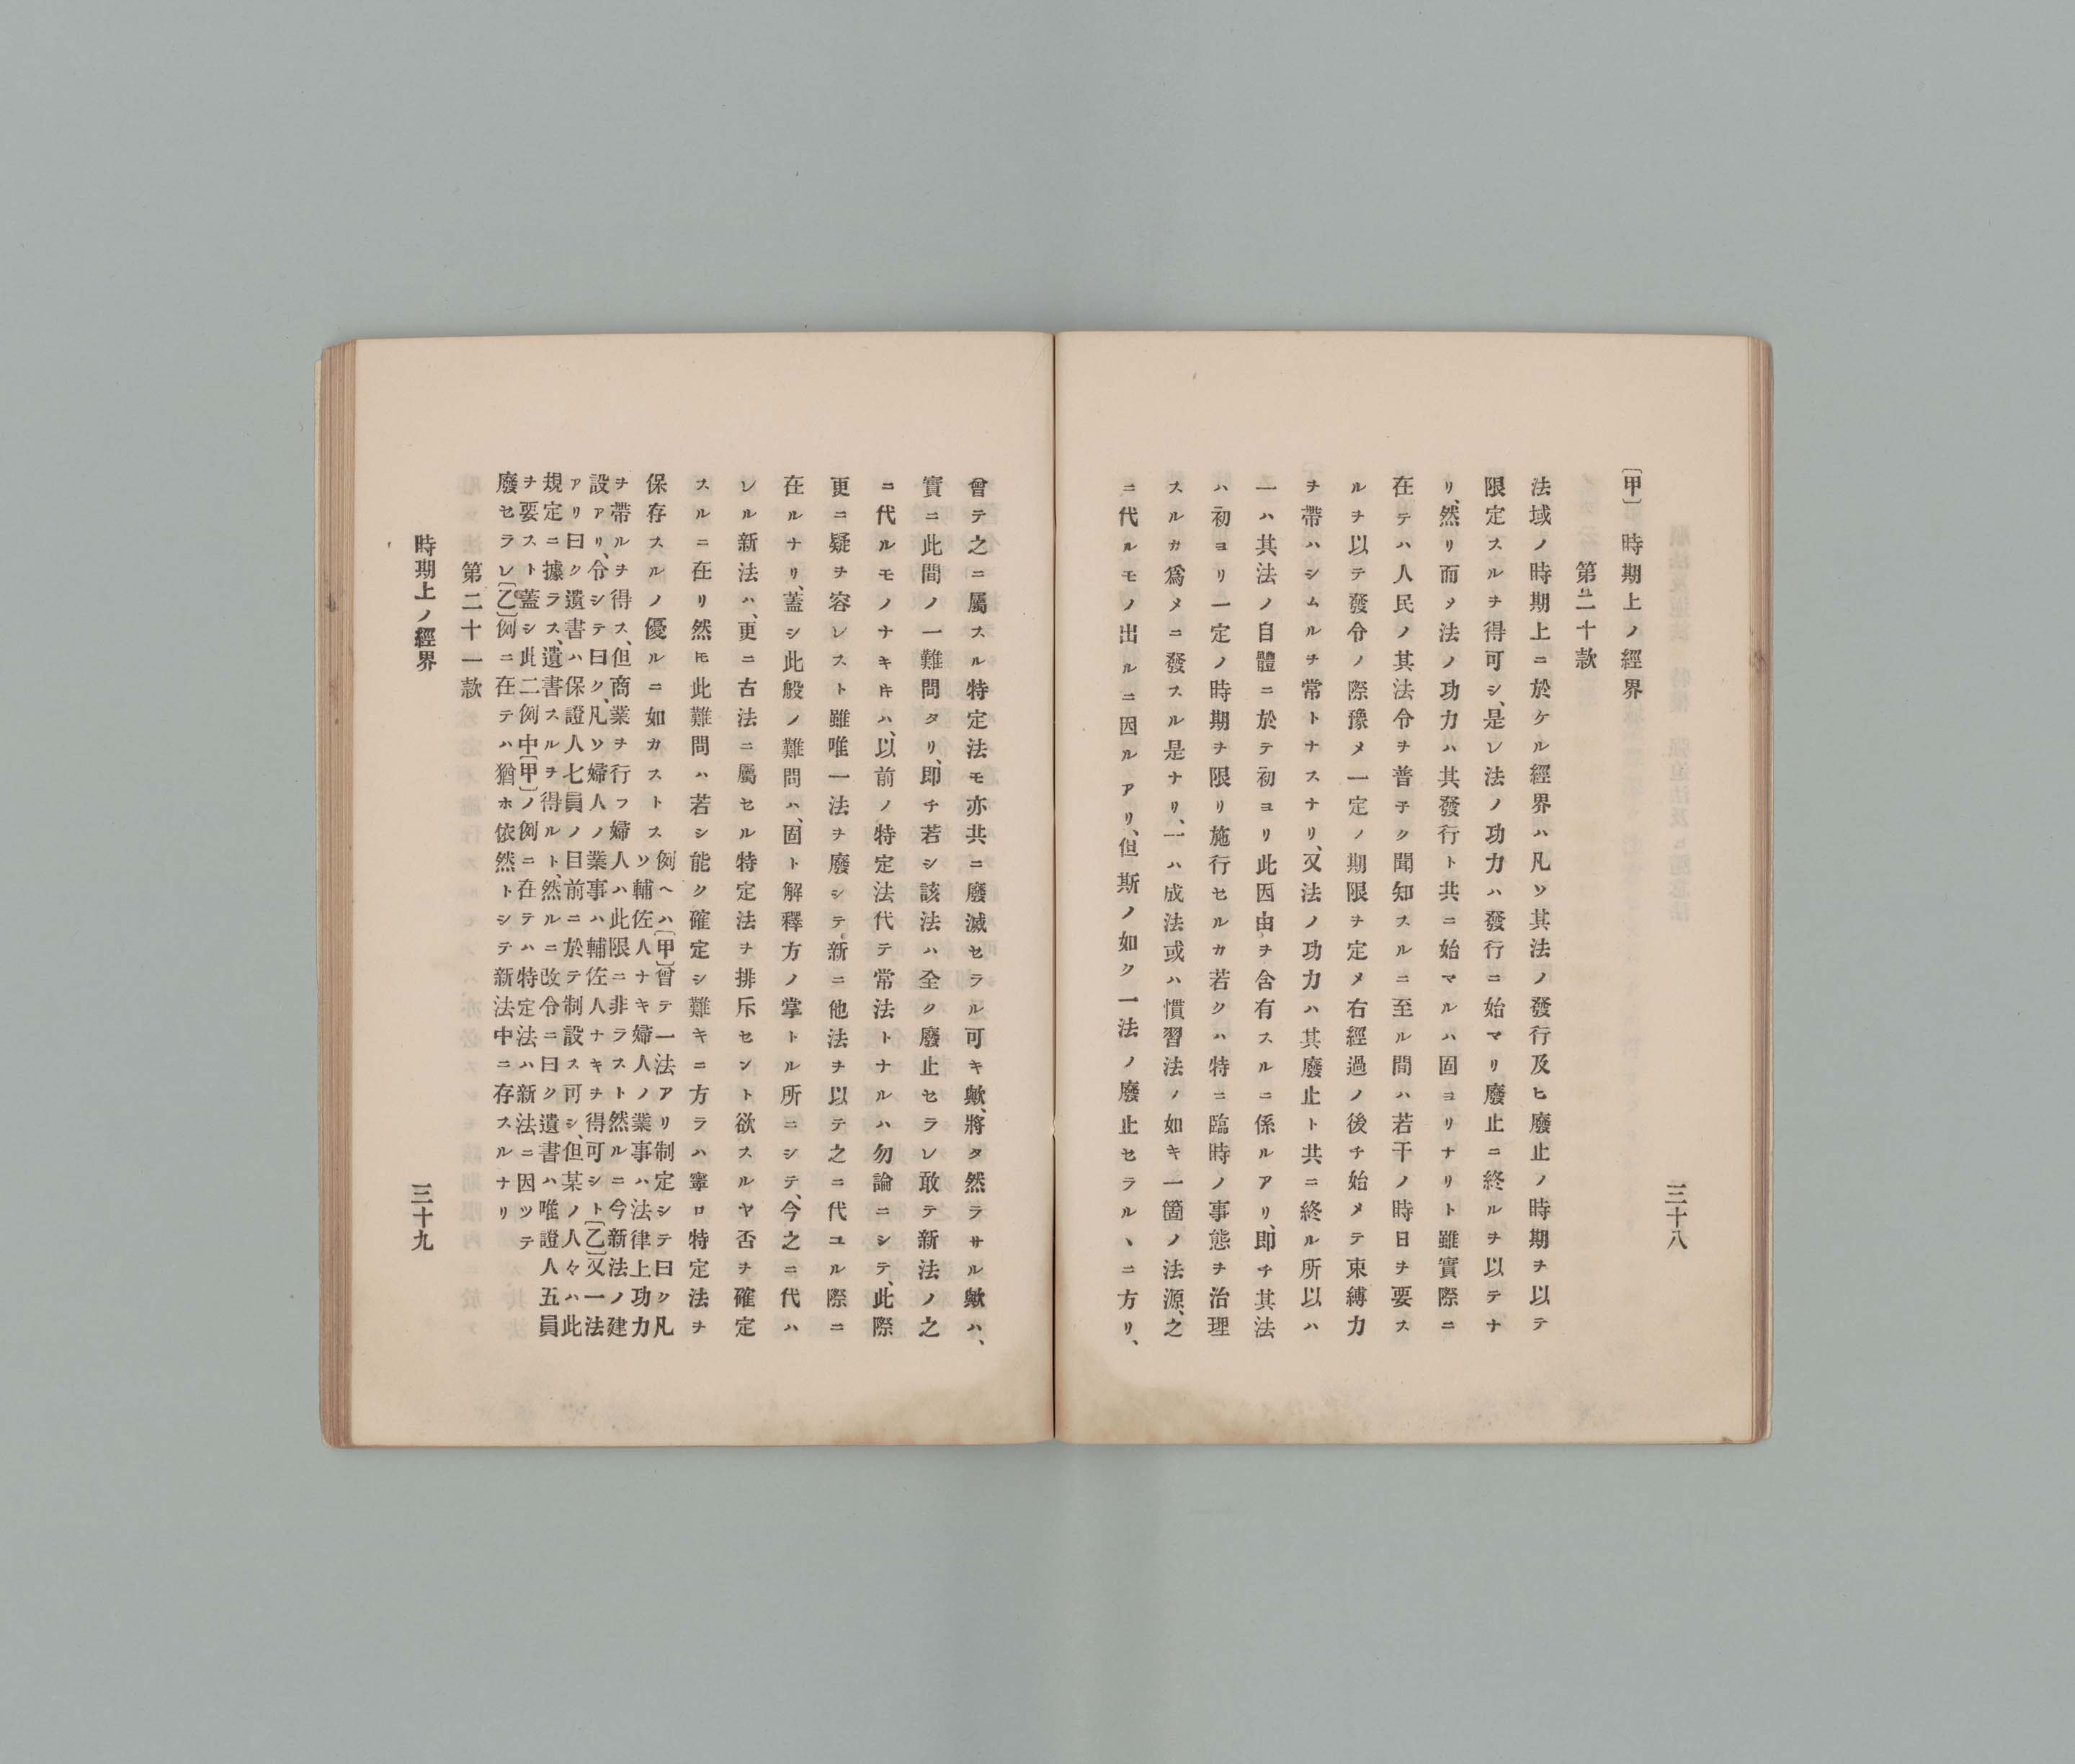 三十八
〔甲〕時期上ノ經界
第二十款
法域ノ時期上ニ於ケル經界ハ凡ソ其法ノ發行及ヒ廢止ノ時期ヲ以テ
限定スルヲ得可シ、是レ法ノ功力ハ發行ニ始マリ廢止ニ終ルヲ以テナ
リ、然リ而メ法ノ功力ハ其發行ト共ニ始マルハ固ヨリナリト雖實際ニ
在テハ人民ノ其法令ヲ普子ク聞知スルニ至ル間ハ若干ノ時日ヲ要ス
ルヲ以テ發令ノ際豫メ一定ノ期限ヲ定メ右經過ノ後チ始メテ束縛力
ヲ帶ハシムルヲ常トナスナリ、又法ノ功力ハ其廢止ト共ニ終ル所以ハ
一ハ其法ノ自體ニ於テ初ヨリ此因由ヲ含有スルニ係ルアリ、即チ其法
ハ初ヨリ一定ノ時期ヲ限リ施行セルカ若クハ特ニ臨時ノ事態ヲ治理
スルカ爲メニ發スル是ナリ、一ハ成法或ハ慣習法ノ如キ一箇ノ法源、之
ニ代ルモノ出ルニ因ルアリ、但斯ノ如ク一法ノ廢止セラルヽニ方リ、
曾テ之ニ屬スル特定法モ亦共ニ廢滅セラル可キ歟、將タ然ラサル歟ハ、
實ニ此間ノ一難問タリ、即チ若シ該法ハ全ク廢止セラレ敢テ新法ノ之
ニ代ルモノナキキハ、以前ノ特定法代テ常法トナルハ勿論ニシテ、此際
更ニ疑ヲ容レスト雖唯一法ヲ廢シテ新ニ他法ヲ以テ之ニ代ユル際ニ
在ルナリ、蓋シ此般ノ難問ハ、固ト解釋方ノ掌トル所ニシテ、今之ニ代ハ
レル新法ハ、更ニ古法ニ屬セル特定法ヲ排斥セント欲スルヤ否ヲ確定
スルニ在リ然𪜈此難問ハ若シ能ク確定シ難キニ方ラハ寧ロ特定法ヲ
保存スルノ優ルニ如カストス
例ヘハ〔甲〕曾テ一法アリ制定シテ曰ク凡
ソ輔佐人ナキ婦人ノ業事ハ法律上功力
ヲ帶ルヲ得ス、但商業ヲ行フ婦人ハ此限ニ非ラスト然ルニ今新法ノ建
設アリ、令シテ曰ク、凡ソ婦人ノ業事ハ輔佐人ナキヲ得可シト〔乙〕又一法
アリ曰ク遺書ハ保證人七員ノ目前ニ於テ制設ス可シ、但某ノ人々ハ此
規定ニ據ラス、遺書スルヲ得ルト、然ルニ改令ニ曰ク遺書ハ唯證人五員
ヲ要スト蓋シ此二例中〔甲〕ノ例ニ在テハ特定法ハ新法ニ因ツテ
廢セラレ〔乙〕例ニ在テハ猶ホ依然トシテ新法中ニ存スルナリ
第二十一款
時期上ノ經界
三十九